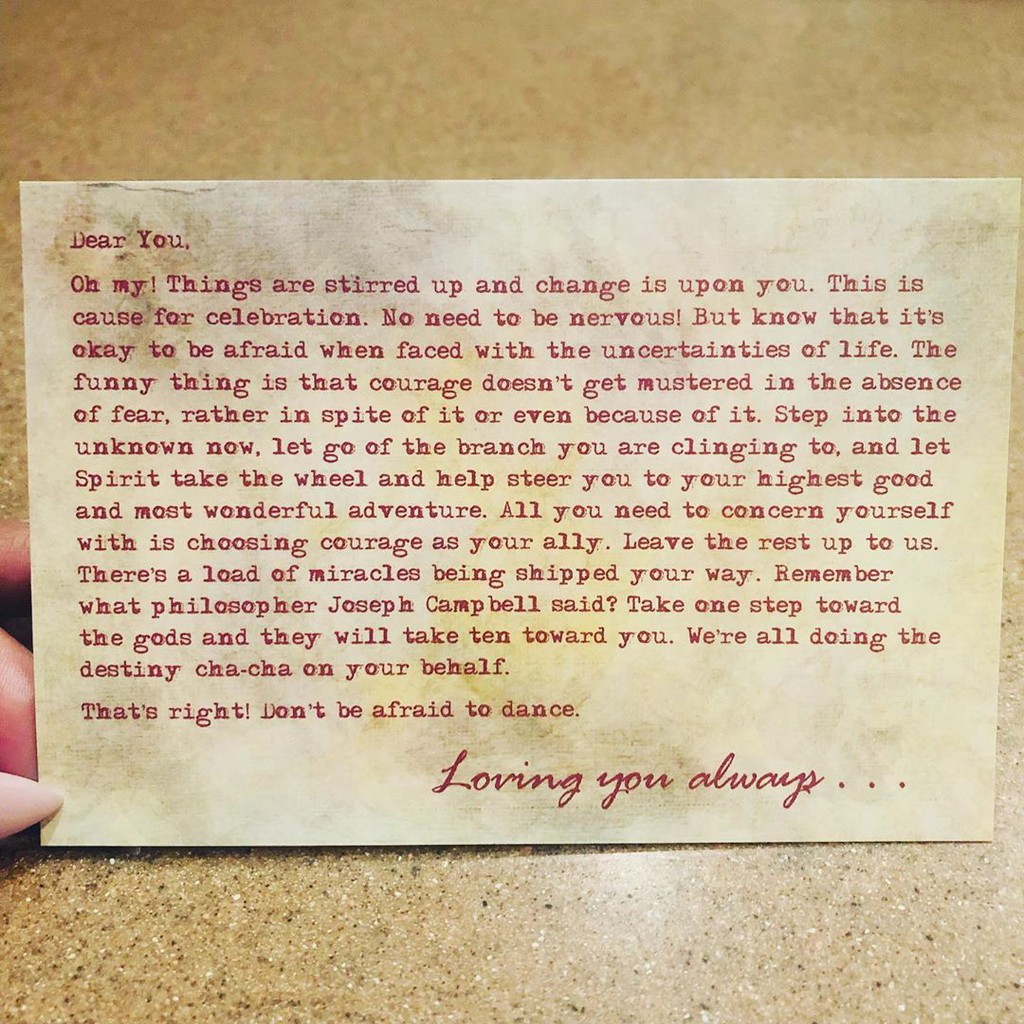 Dear You,
Oh my! Things are stirred up and change is upon you. This is
cause for celebration. No need to be nervous! But know that it's
okay to be afraid when faced with the uncertainties of life. The
funny thing is that courage doesn't get mustered in the absence
of fear, rather in spite of it or even because of it. Step into the
unknown now, let go of the branch you are clinging to, and let
Spirit take the wheel and help steer you to your highest good
and most wonderful adventure. All you need to concern yourself
with is choosing courage as your ally. Leave the rest up to us.
There's a load of miracles being shipped your way. Remember
what philosopher Joseph Campbell said? Take one step toward
the gods and they will take ten toward you. We're all doing the
destiny cha-cha on your behalf.
That's right! Don't be afraid to dance.
Loving you always . . .